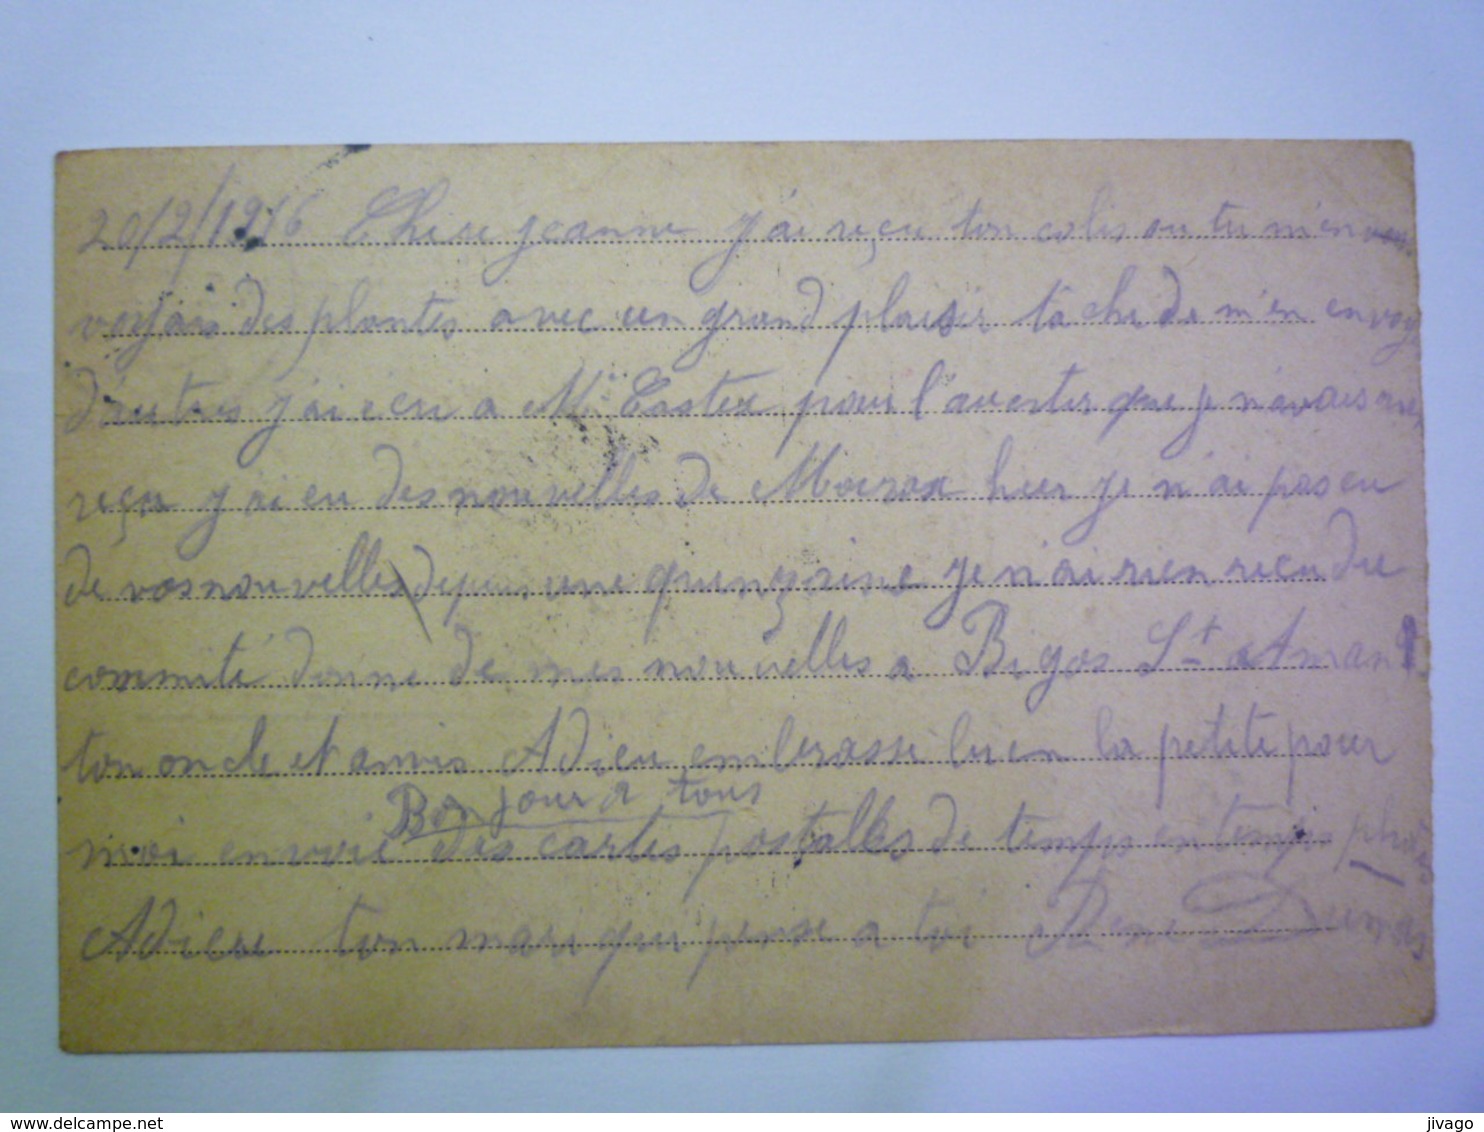 20/2/1916 Cherse jeanne j'ai reçu ton colis ou tu m'en
voyais des plantes avec un grand plaisir tâche de m'en envoye
d'autres j'ai à Mr Castex pour l'avertir que je n'avais
reçu j'ai eu des nouvelles de hier je n'ai pas eu
de vos nouvelles depuis une quinzaine je n'ai rien reçu du
commité donne de mes nouvelles a Bigos St Amans
ton oncle et amis Adieu embrasse bien la petite pour
Bonjour a tous
moi envoie des cartes postalles de temps en temps photos
Adieu ton mari qui pense a toi René Dumas
delcampe.net
jivago